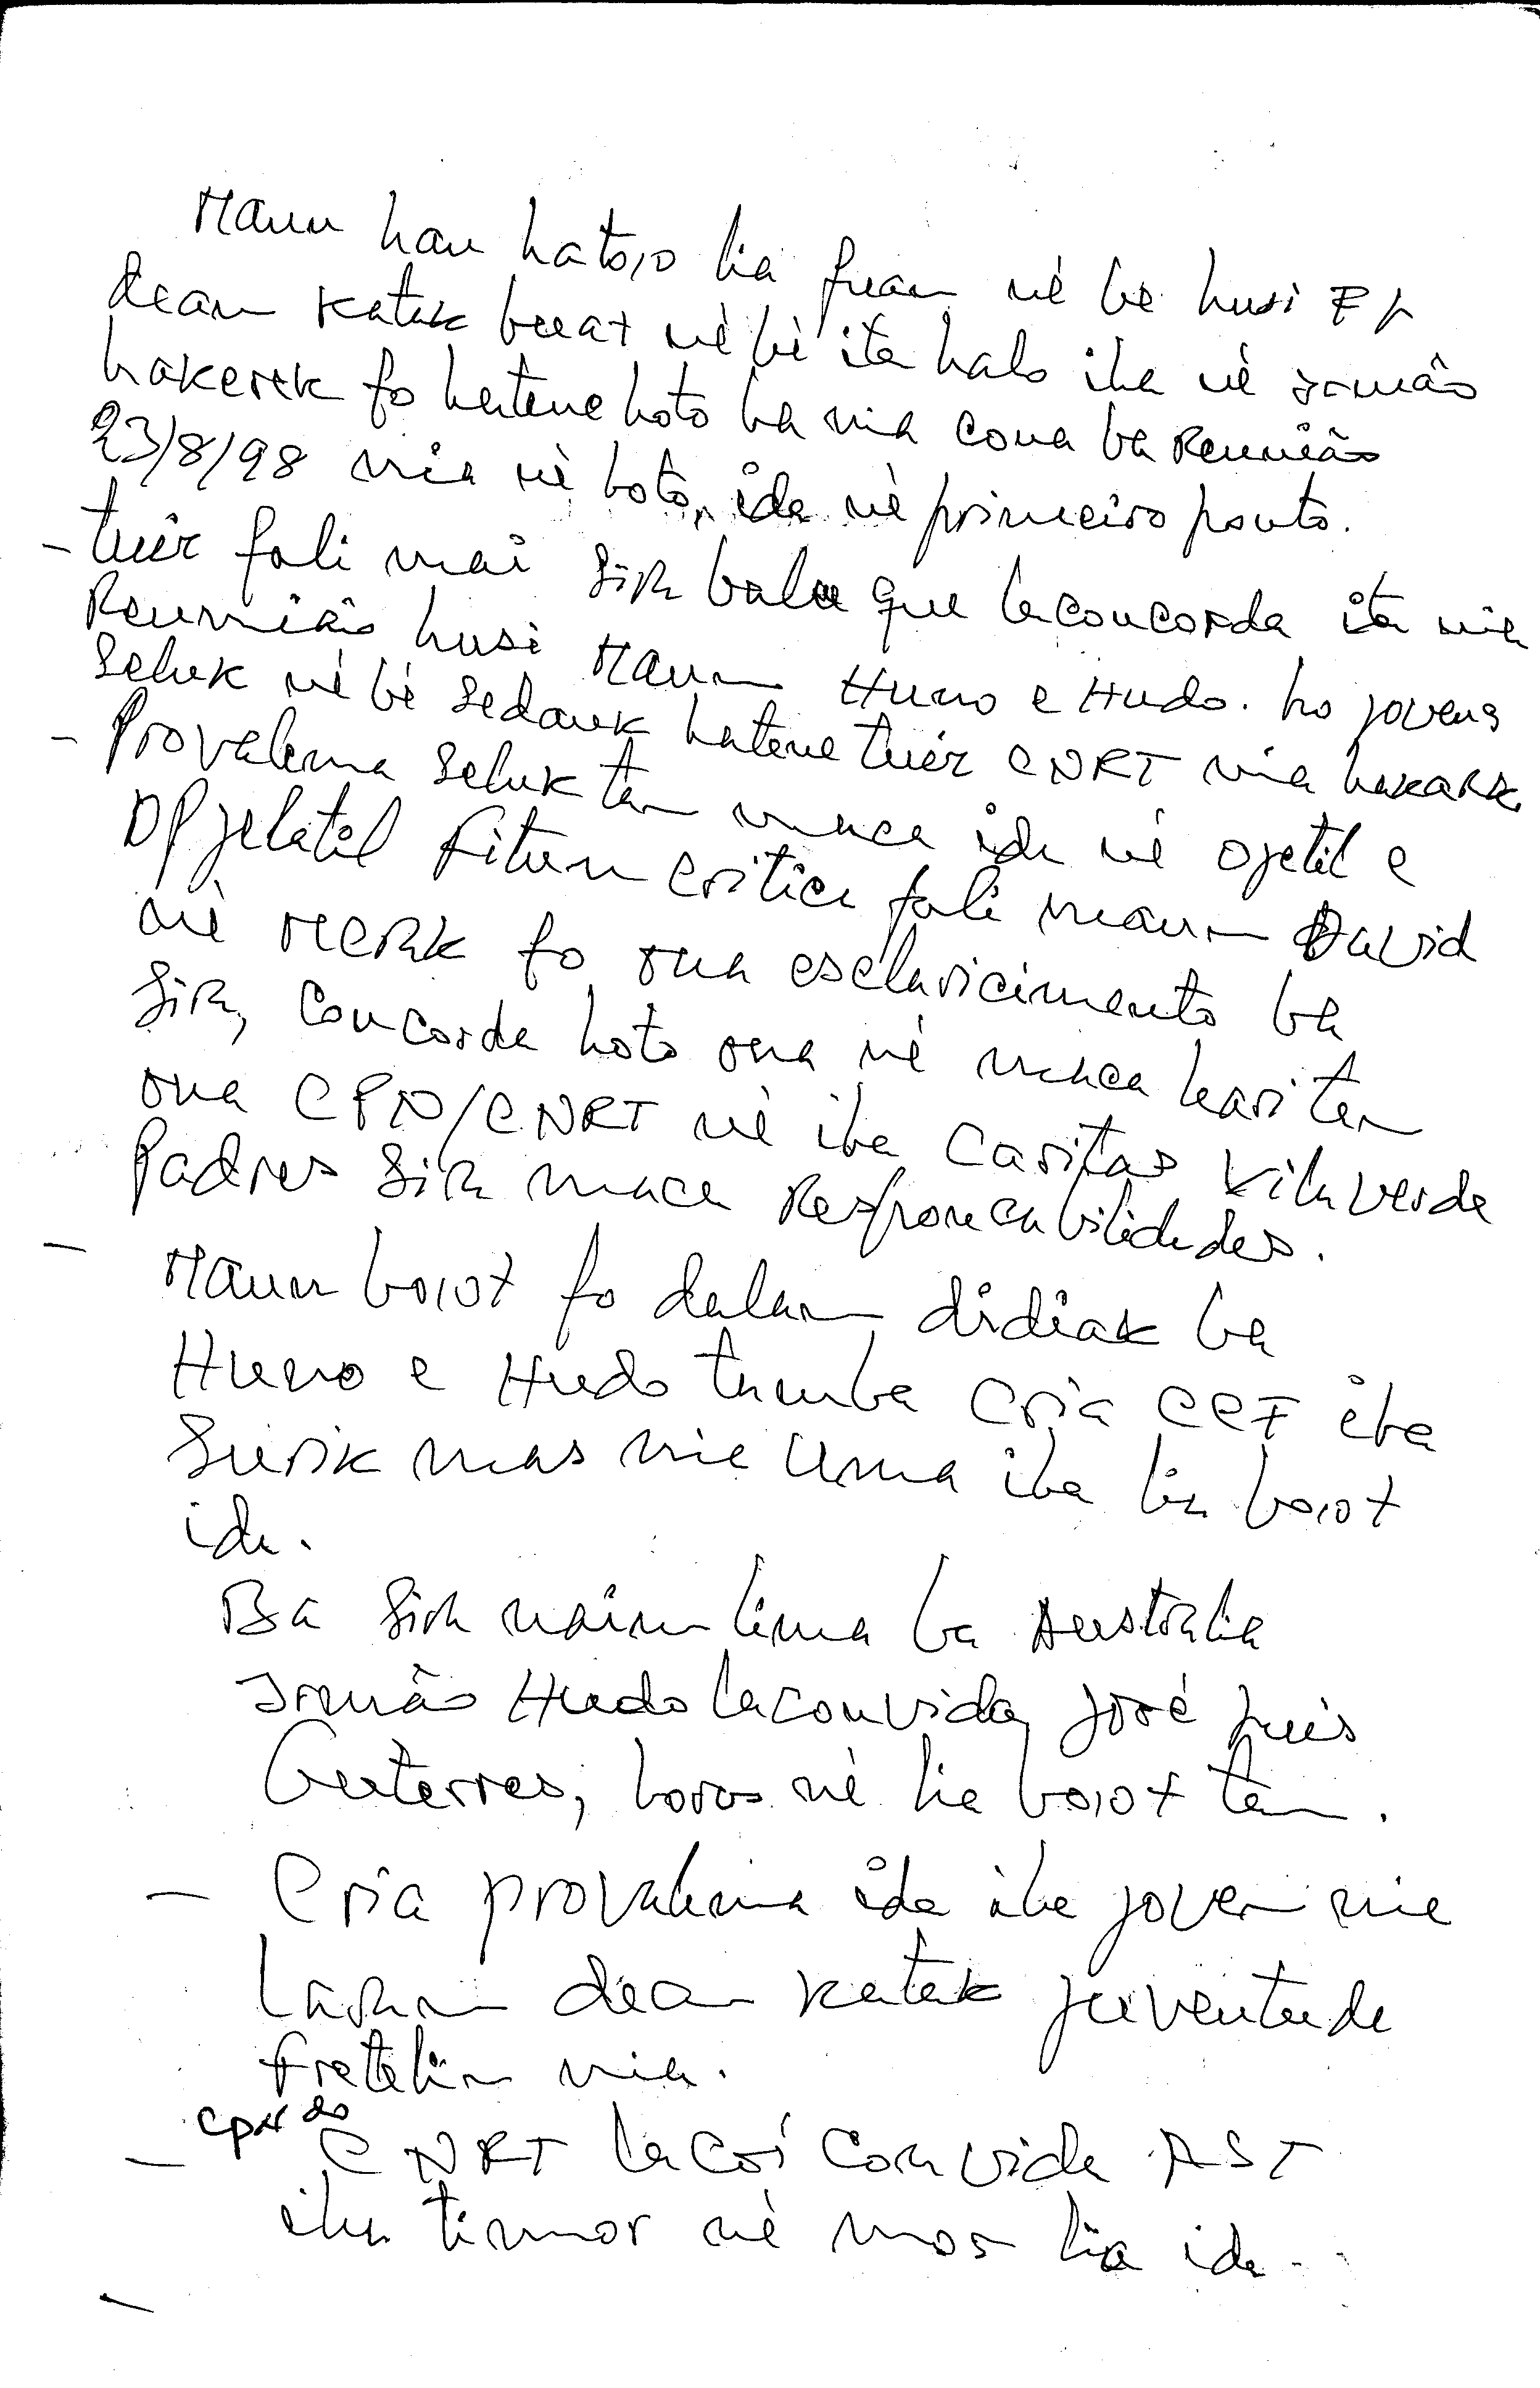 Maun hau hato,o lia fuan nè be husi FP
dean katak buat nè bè ita halo iha nè irmão
hakerek fo hatene hoto ba nia cona ba Reunião
23/8/98 nia nè hoto, ida nè primeiro ponto.
- tuir fali mai sira balu que la concorda ita nia
Reunião husi Maun Huno e Hudo. ho jovens
seluk nè bè sedauk hatene tuir CNRT nia hakarak
- Provalema seluk tan maca ida nè ojetil e
Dfjelatil Fitun critica fali maun David
nè Merak fo ona esclaricimento ba
sira, concorda hoto ona nè maca hari tan
ona CPN/CNRT nè iha Caritas Vila verde
Padres sira maca Responcabilidades.
- Maun bo,ot fo dalan didiak ba
Huno e Hudo tamba Cria CCF iha
Surik mas nia Uma iha lia bo,ot
ida.
Ba sira nain lima ba Australia
Irmão Hudo la convida José Luis
Guterres, horas nè lia bo,ot tan.
- Cria provalema ida iha joven nia
laran dean katak juventude
Fretelin nia.
cpn do
- CNRT la coi Convida AST
iha timor nè mos lia ida..
-